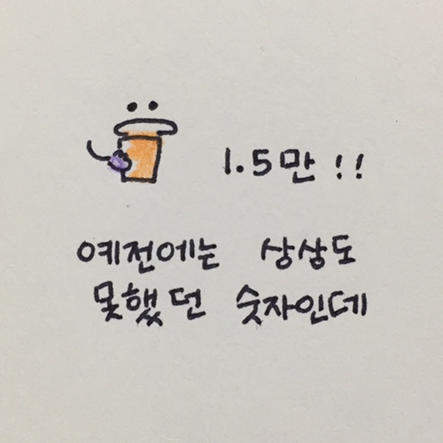 1.5만!!
예전에는 상상도
못했던 숫자인데